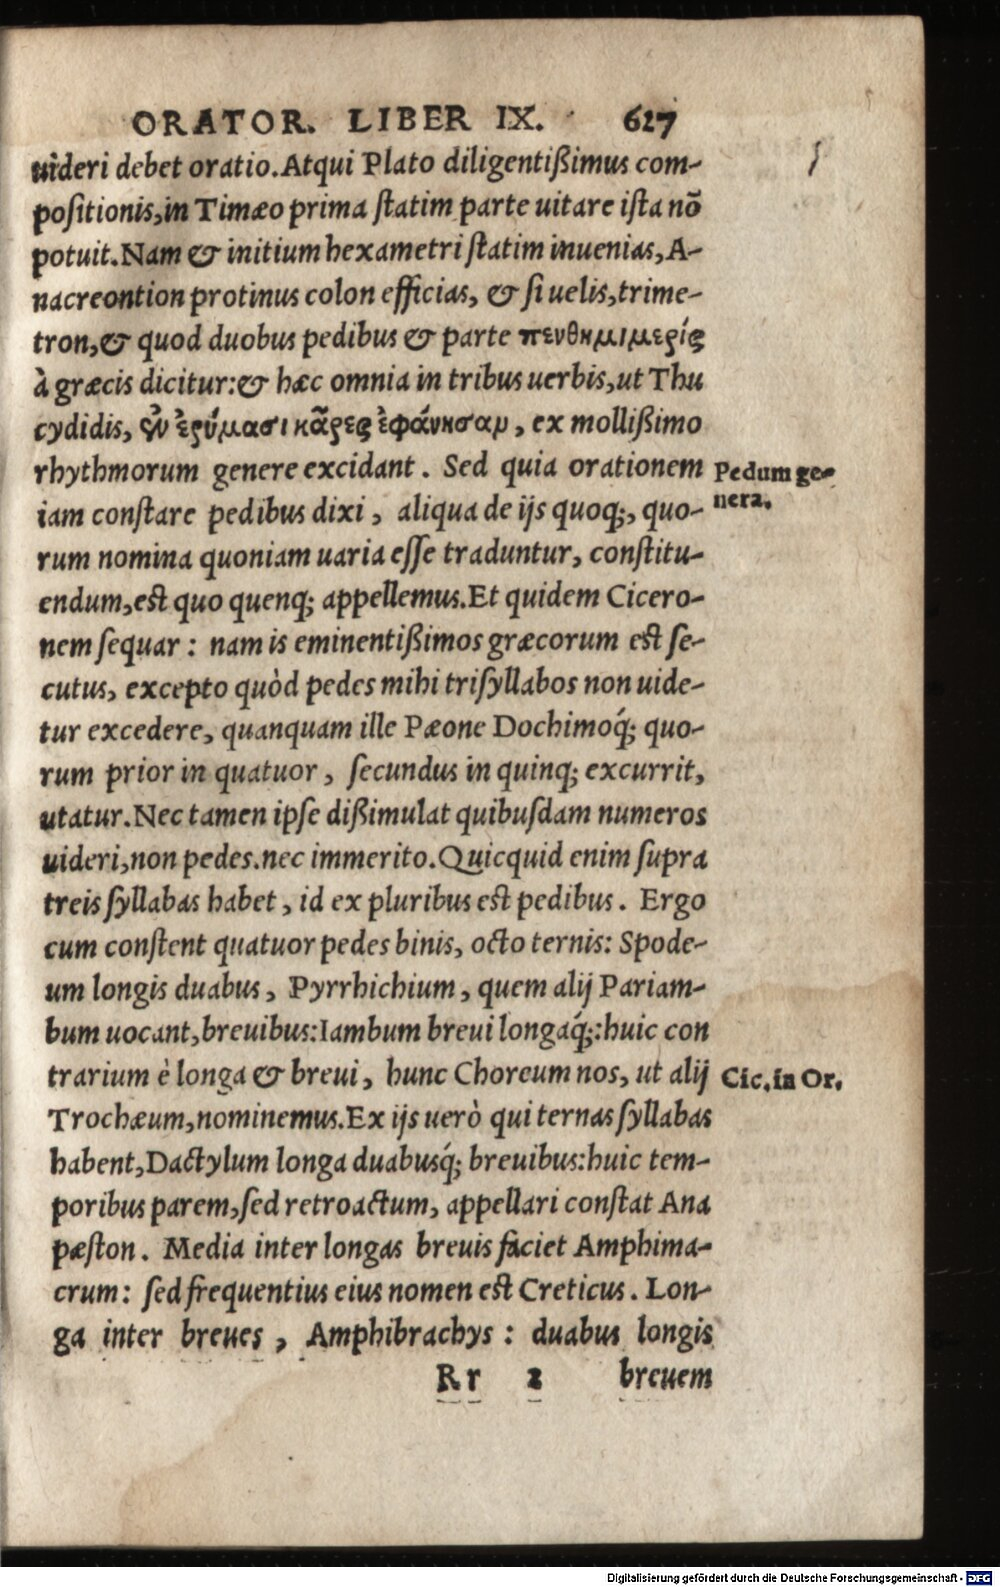 ORATOR. LIBER IX. 627
uideri debet oratio. Atqui Plato diligentißimus com-
positionis, in Timæo prima statim parte uitare ista nõ
potuit. Nam & initium hexametri statim inuenias, A-
nacreontion protinus colon efficias, & si uelis, trime-
tron, & quod duobus pedibus & parte πενθημιμερίς
à græcis dicitur: & hæc omnia in tribus uerbis, ut Thu
cydidis, ἐρύμασι κᾶρες ἐφάνησαν, ex mollißimo
rhythmorum genere excidant. Sed quia orationem
Pedum ge-
nera.
iam constare pedibus dixi, aliqua de ijs quoq;, quo-
rum nomina quoniam uaria esse traduntur, constitu-
endum, est quo quenq; appellemus. Et quidem Cicero-
nem sequar: nam is eminentißimos græcorum est se-
cutus, excepto quòd pedes mihi trisyllabos non uide-
tur excedere, quanquam ille Pæone Dochimoq́; quo-
rum prior in quatuor, secundus in quinq; excurrit,
utatur. Nec tamen ipse dißimulat quibusdam numeros
uideri, non pedes. nec immerito. Quicquid enim supra
treis syllabas habet, id ex pluribus est pedibus. Ergo
cum constent quatuor pedes binis, octo ternis: Spode-
um longis duabus, Pyrrhichium, quem alij Pariam-
bum uocant, breuibus: Iambum breui longaq́;: huic con
trarium è longa & breui, hunc Choreum nos, ut alij
Cic. in Or.
Trochæum, nominemus. Ex ijs uerò qui ternas syllabas
habent, Dactylum longa duabusq́; breuibus: huic tem-
poribus parem, sed retroactum, appellari constat Ana
pæston. Media inter longas breuis faciet Amphima-
crum: sed frequentius eius nomen est Creticus. Lon-
ga inter breues, Amphibrachys: duabus longis
Rr 2 breuem
Digitalisierung gefördert durch die Deutsche Forschungsgemeinschaft - DFG